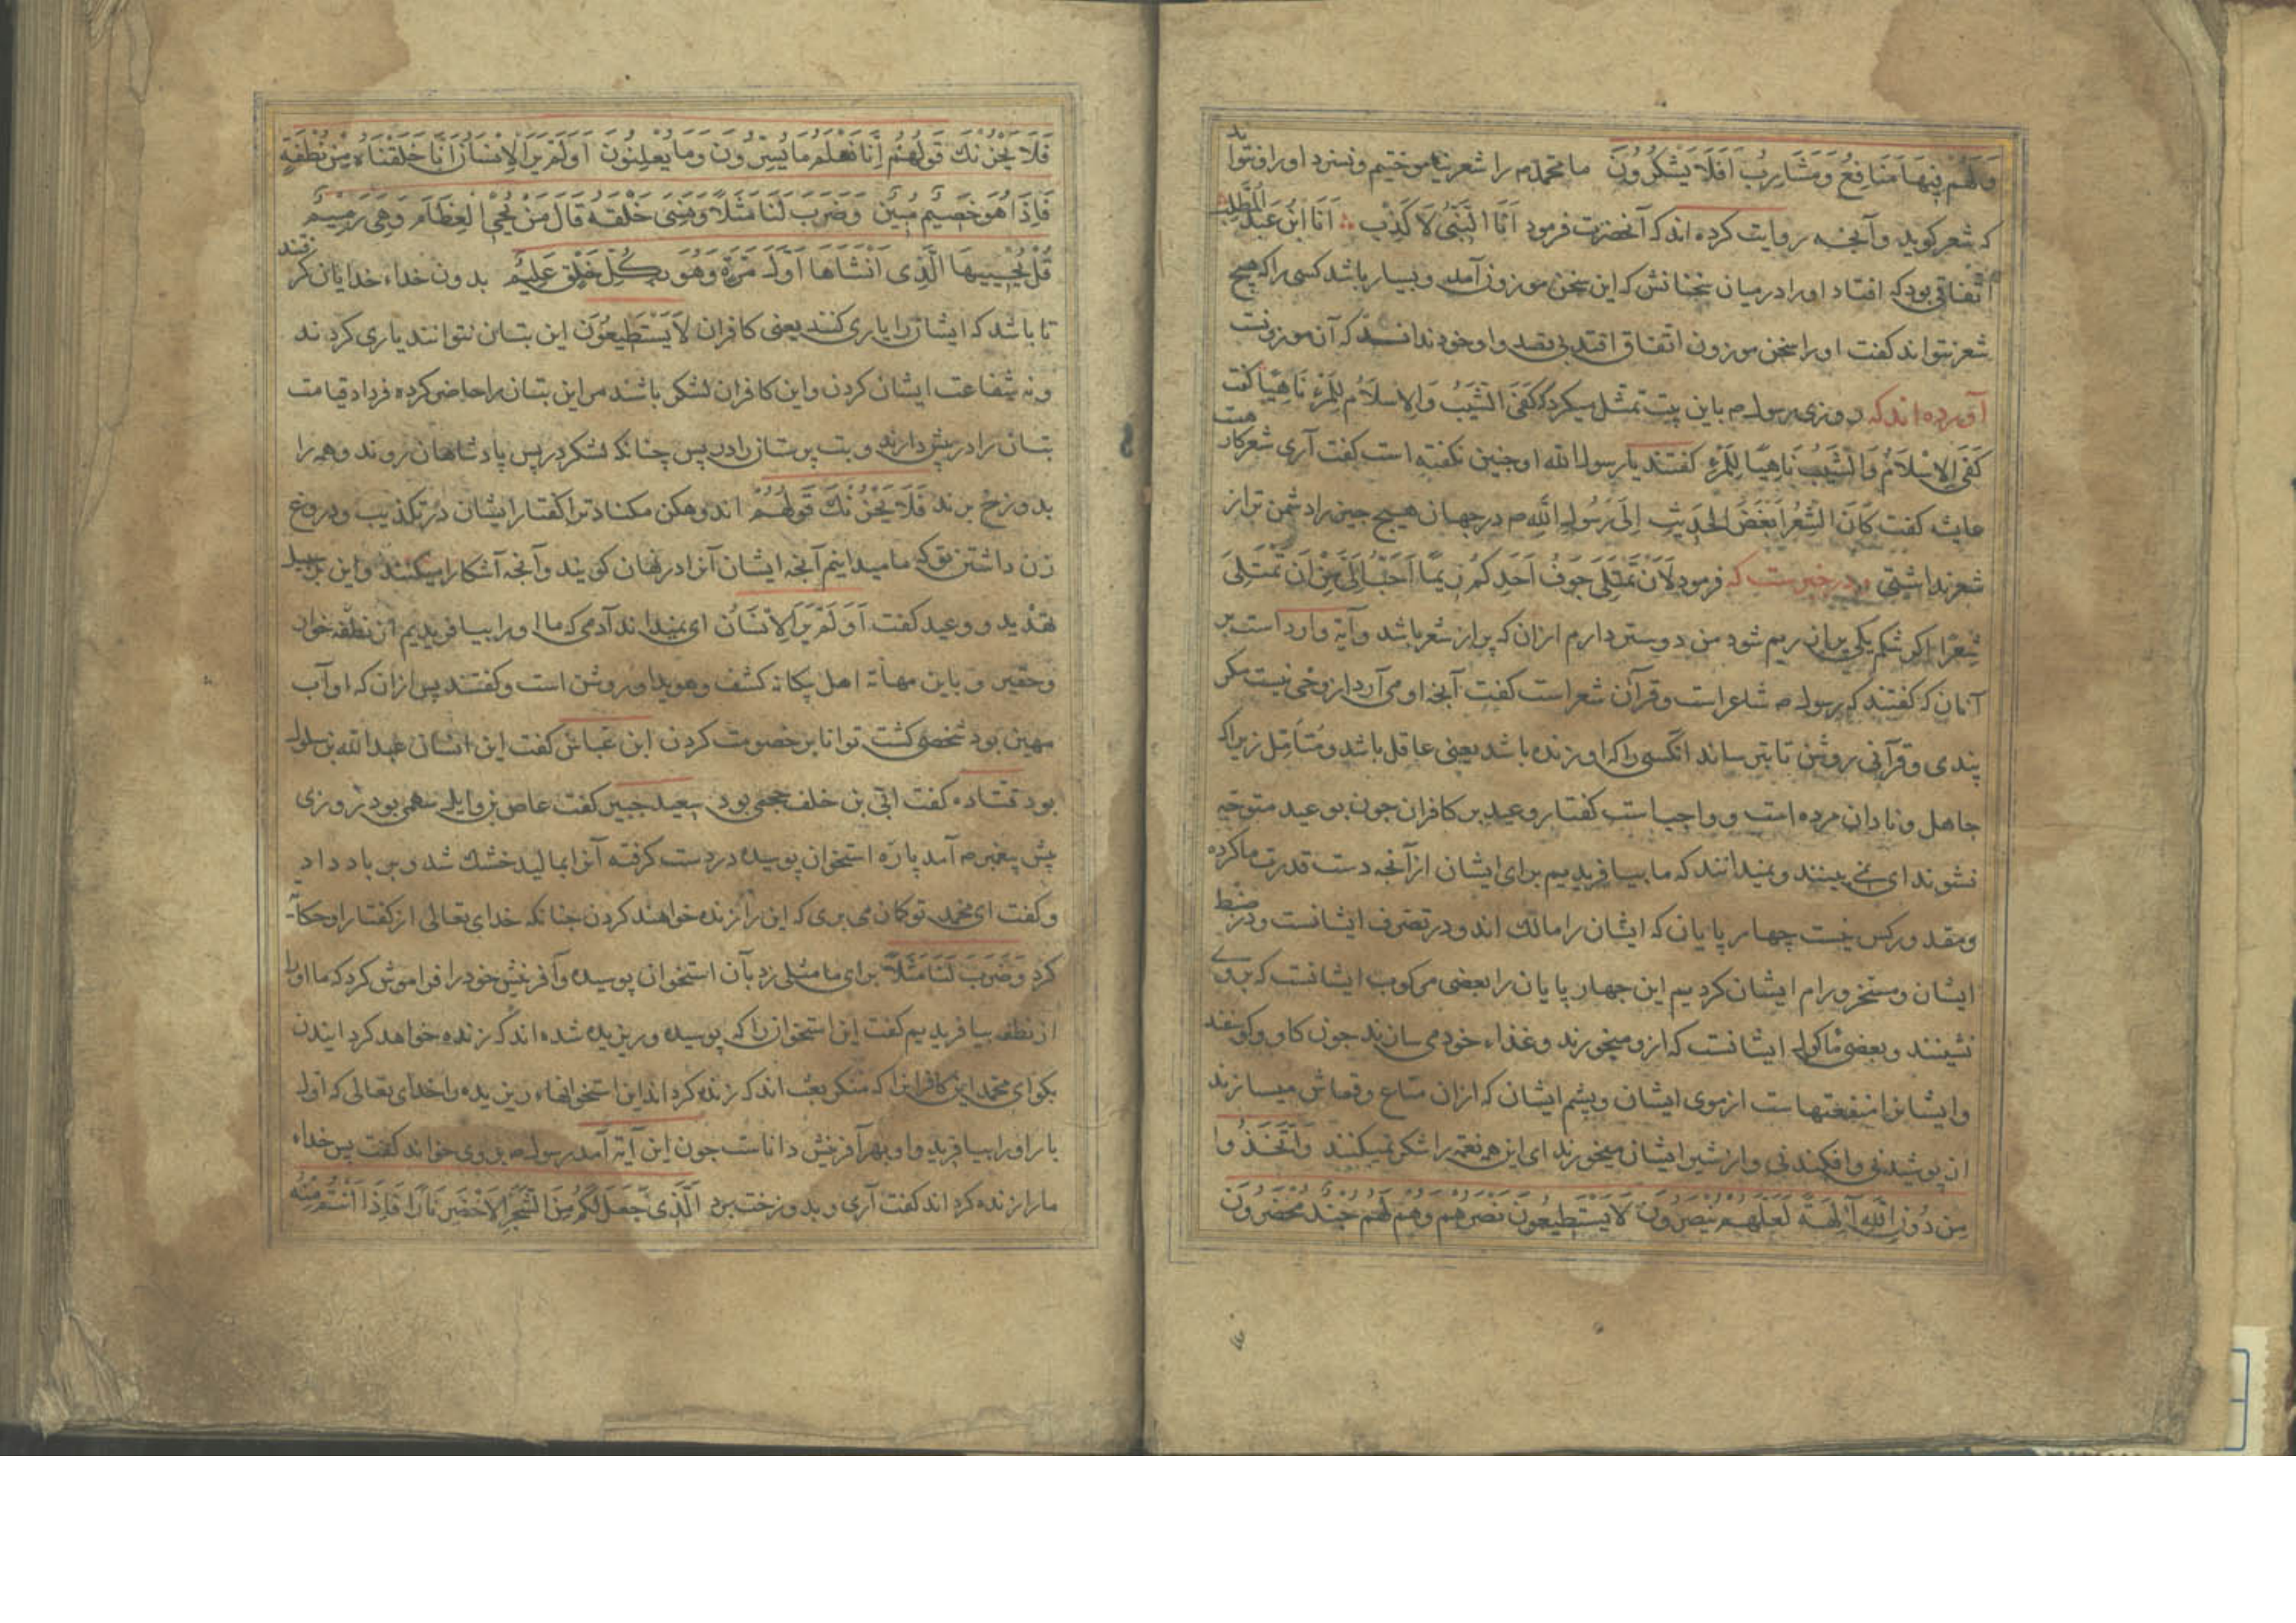 وَلَهُمْ فِيهَا مَنَافِعُ وَمَشَارِبُ أَفَلَا يَشْكُرُونَ ما محمد م را شعر نیاموختیم و نسزد او را و نتواند
که شعر گوید و آنچه روایت کرده اند که آنحضرت فرمود اَنَا النَّبِیُّ لَا کَذِبْ اَنَا ابْنُ عَبْدِ الْمُطَّلِبْ
اتفاقی بود که افتاد او را در میان سخنانش که این سخن موزون آمد و بسیار باشد کسی را که هیچ
شعر نتواند کفت او را سخن موزون اتفاق افتد بی قصد و او خود نداند که آن موزونست
آورده اند که روزی رسول م باین بیت تمثل میکرد که کَفَی الشَّیْبُ وَالاِسْلَامُ لِلْمَرْءِ نَاهِیًا کفت
کَفَی الاِسْلَامُ وَالشَّیْبُ نَاهِیًا لِلْمَرْءِ کفتند یا رسول الله او چنین نکفته است کفت آری شعر کار
عایشه کفت کَانَ الشِّعْرُ اَبْغَضَ الْحَدِیثِ اِلَی رَسُولِ اللهِ م در جهان هیچ چیز را دشمن تر از
شعر نداشتی و در خبرست که فرمود لَاَنْ تَمْتَلِیَ جَوْفُ اَحَدِکُمْ اَحَبُّ اِلَیَّ مِنْ اَنْ تَمْتَلِیَ
شِعْرًا اکر شکم یکی پر از ریم شود من دوستر دارم ازان که پر از شعر باشد و آیة وارد است بر
آنان که کفتند که رسول م شاعر است و قرآن شعر است کفت آنچه او می آرد از وحی نیست مکر
پندی و قرآنی روشن تا بترساند آنکسی را که او زنده باشد یعنی عاقل باشد و متأمل زیرا که
جاهل و نادان مرده است و واجب است کفتار وعید بر کافران چون بوعید متوجه
نشوند ای نمی بینند و نمیدانند که ما بیافریدیم برای ایشان از آنچه دست قدرت ما کرده
و مقدور کس نیست چهار پایان که ایشان را مالک اند و در تصرف ایشانست و در ضبط
ایشان و مسخر و رام ایشان کردیم این چهار پایان را بعضی مرکوب ایشانست که بر وی
نشینند و بعضی مأکول ایشانست که ازو میخورند و غذاء خود می سازند چون کاو و کوسفند
و ایشانرا منفعتهاست از موی ایشان و پشم ایشان که ازان متاع و قماش میسازند
از پوشیدنی و افکندنی و از شیر ایشان میخورند ای این همه نعمه را شکر نمیکنند وَاتَّخَذُوا
مِنْ دُونِ اللهِ آلِهَةً لَعَلَّهُمْ يُنْصَرُونَ لَا يَسْتَطِيعُونَ نَصْرَهُمْ وَهُمْ لَهُمْ جُنْدٌ مُحْضَرُونَ
فَلَا يَحْزُنْكَ قَوْلُهُمْ إِنَّا نَعْلَمُ مَا يُسِرُّونَ وَمَا يُعْلِنُونَ اَوَلَمْ يَرَ الْاِنْسَانُ اَنَّا خَلَقْنَاهُ مِنْ نُطْفَةٍ
فَاِذَا هُوَ خَصِيمٌ مُبِينٌ وَضَرَبَ لَنَا مَثَلًا وَنَسِيَ خَلْقَهُ قَالَ مَنْ يُحْيِي الْعِظَامَ وَهِيَ رَمِيمٌ
قُلْ يُحْيِيهَا الَّذِي اَنْشَاَهَا اَوَّلَ مَرَّةٍ وَهُوَ بِكُلِّ خَلْقٍ عَلِيمٌ بدون خداء خدایان کرفتند
تا باشد که ایشان را یاری کنند یعنی کافران لَا يَسْتَطِيعُونَ این بتان نتوانند یاری کردند
و نه شفاعت ایشان کردن و این کافران لشکر باشند مر این بتان را حاضر کرده فردا قیامت
بتان را در پیش دارند و بت پرستان را در پس چنانکه لشکر در پس پادشاهان روند و همه را
بدوزخ برند فَلَا يَحْزُنْكَ قَوْلُهُمْ اندوهکن مکناد ترا کفتار ایشان در تکذیب و دروغ
زن داشتن تو که ما میدانیم آنچه ایشان آنرا در نهان کویند و آنچه آشکارا میکنند و این بر سبیل
تهدید و وعید کفت اَوَلَمْ يَرَ الْاِنْسَانُ ای نمیداند آدمی که ما او را بیافریدیم از نطفه خوار
و حقیر و باین کشف و هویدا و روشن است و کفتند پس ازان که او آب
مهین بود شخصی کشت توانا بر خصومت کردن ابن عباس کفت این انسان عبد الله بن سلول
بود قتاده کفت ابی بن خلف جمحی بود سعید جبیر کفت عاص بن وایل سهمی بود روزی
پیش پیغمبر م آمد پاره استخوان پوسیده در دست کرفته آنرا بمالید خشک شد و بر باد داد
و کفت ای محمد تو کمان می بری که این را زنده خواهند کردن چنانکه خدای تعالی از کفتار او حکایة
کرد وَضَرَبَ لَنَا مَثَلًا برای ما مثلی زد بآن استخوان پوسیده و آفرینش خود را فراموش کرد که ما او را
از نطفه بیافریدیم کفت این استخوان را که پوسیده و ریزیده شده اند که زنده خواهد کردانیدن
بکو ای محمد این کافرانرا که منکر بعث اند که زنده کرداند این استخوانهاء ریزیده را خدای تعالی که اول
بار او را بیافرید و او بهر آفرینش داناست چون این آیة آمد رسول م بر وی خواند کفت پس خداء
مارا زنده کرداند کفت آری و بدوزخت برد الَّذِي جَعَلَ لَكُمْ مِنَ الشَّجَرِ الْاَخْضَرِ نَارًا فَاِذَا اَنْتُمْ مِنْهُ